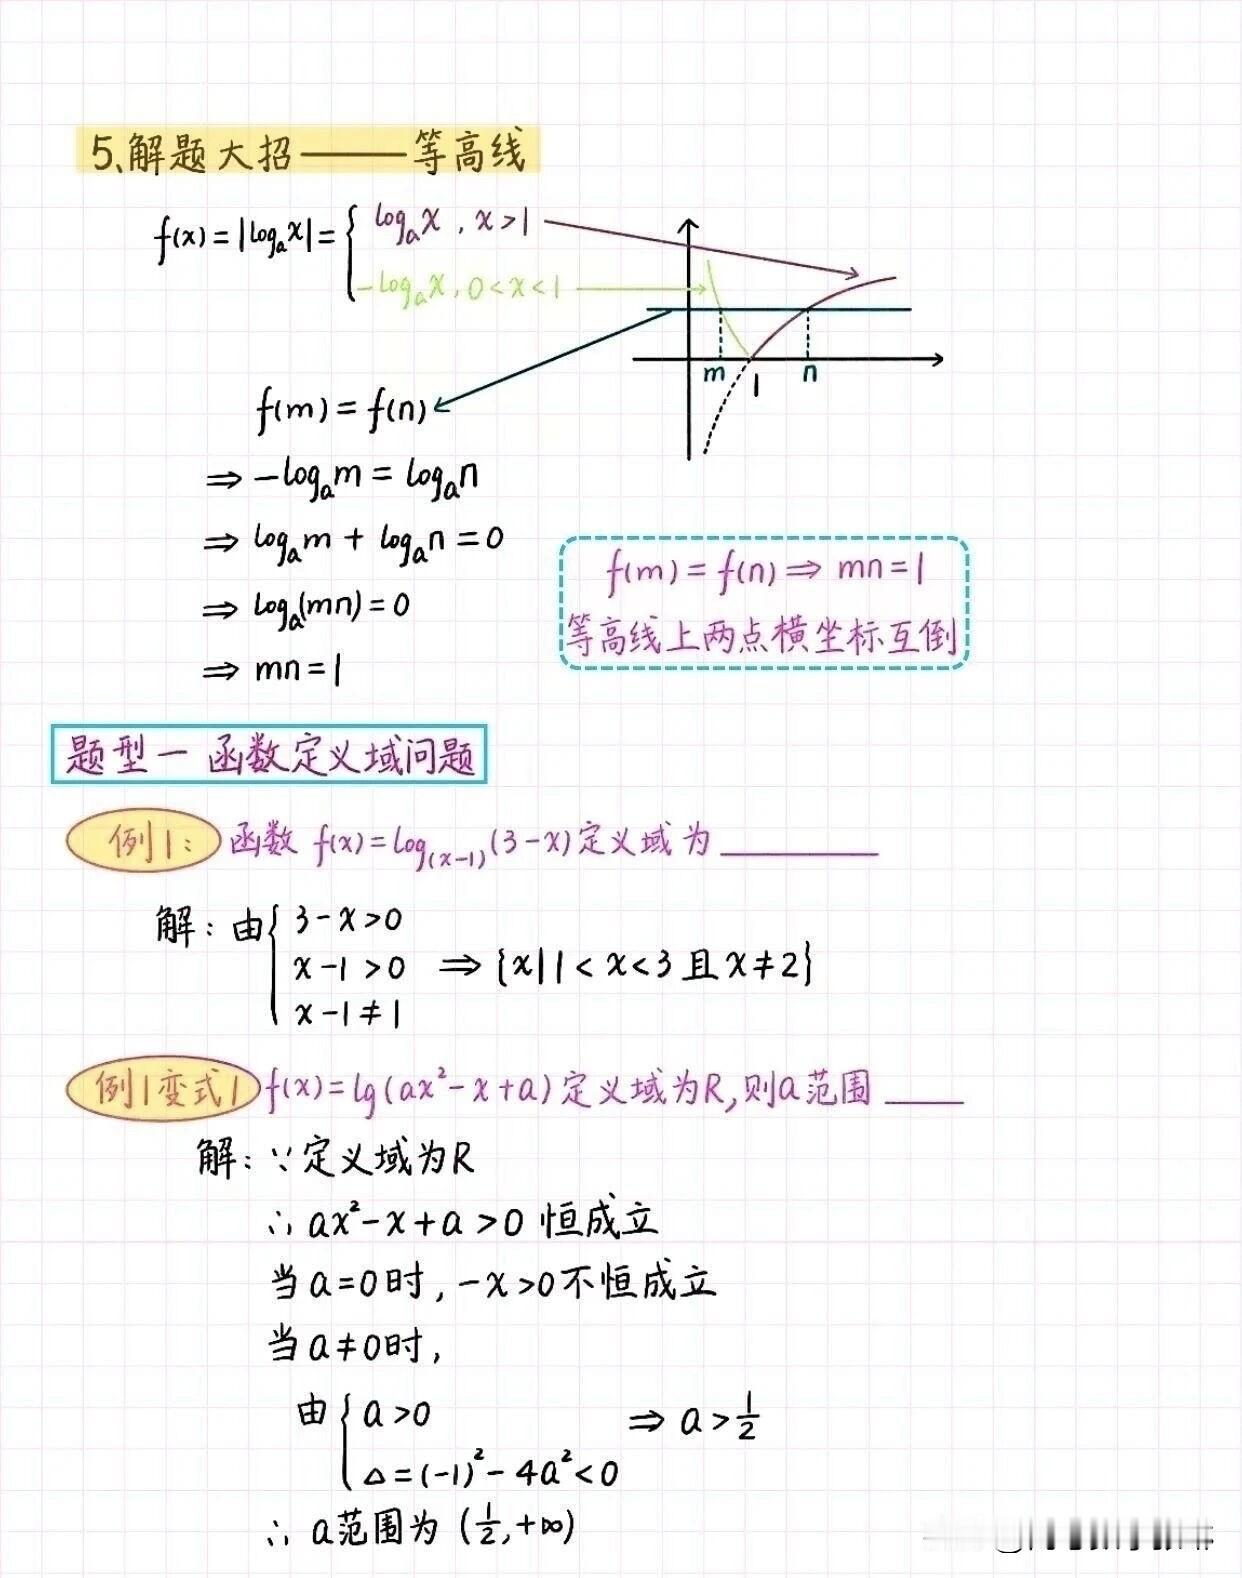 5、解题大招——等高线
f(x)=|logₐx|={ logₐx，x>1
-logₐx，0<x<1
m 1 n
f(m)=f(n)
⇒ -logₐm=logₐn
⇒ logₐm+logₐn=0
⇒ logₐ(mn)=0
⇒ mn=1
f(m)=f(n)⇒mn=1
等高线上两点横坐标互倒
题型一 函数定义域问题
例1：函数 f(x)=log₍ₓ₋₁₎(3-x)定义域为______
解：由{ 3-x>0
x-1>0 ⇒{x|1<x<3且x≠2}
x-1≠1
例1变式1 f(x)=lg(ax²-x+a)定义域为R,则a范围____
解：∵定义域为R
∴ax²-x+a>0 恒成立
当a=0时，-x>0不恒成立
当a≠0时，
由{ a>0 ⇒a>1/2
△=(-1)²-4a²<0
∴a范围为(1/2,+∞)